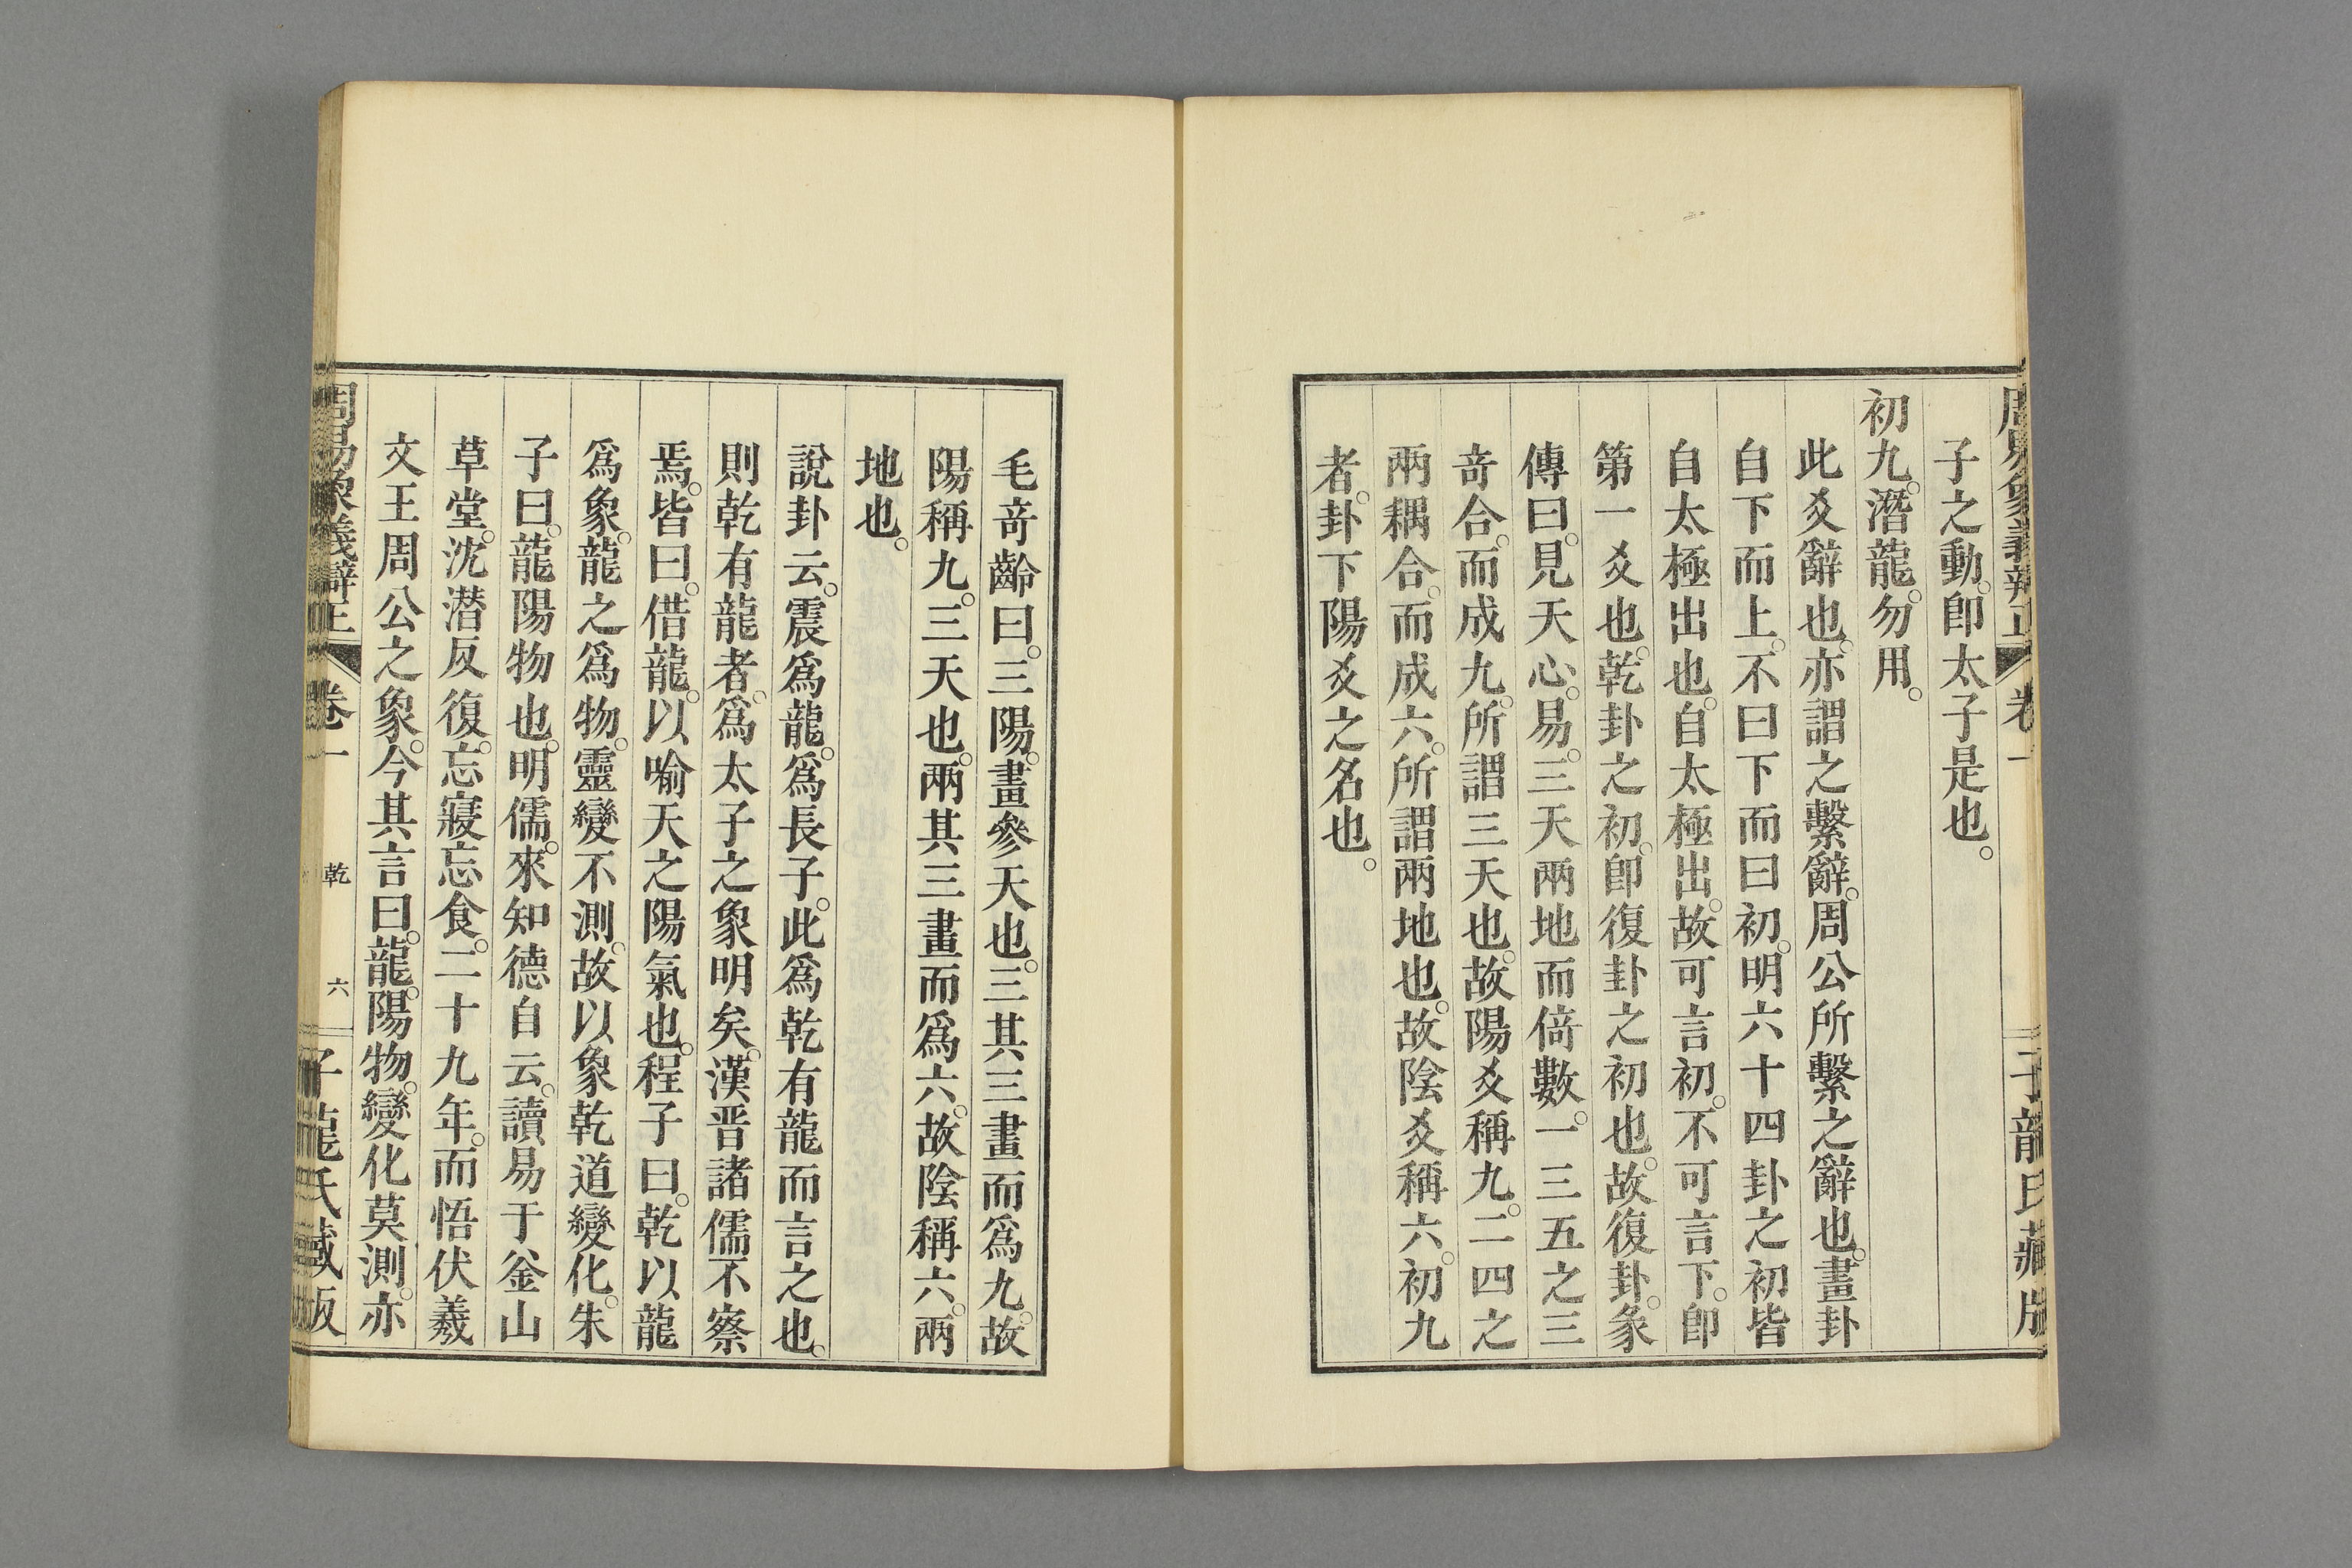 周易象義辯正 卷一 子龍氏藏版
子之動。卽太子是也。
初九。潛龍。勿用。
此爻辭也。亦謂之繫辭。周公所繫之辭也。畫卦
自下而上。不曰下而曰初。明六十四卦之初皆
自太極出也。自太極出。故可言初。不可言下。卽
第一爻也。乾卦之初。卽復卦之初也。故復卦。彖
傳曰。見天心。易。三天兩地而倚數。一三五之三
奇合。而成九。所謂三天也。故陽爻稱九。二四之
兩耦合。而成六。所謂兩地也。故陰爻稱六。初九
者。卦下陽爻之名也。
毛奇齡曰。三陽。畫參天也。三其三畫而爲九。故
陽稱九。三天也。兩其三畫而爲六。故陰稱六。兩
地也。
說卦云。震爲龍。爲長子。此爲乾有龍而言之也。
則乾有龍者。爲太子之象明矣。漢晋諸儒不察
焉。皆曰。借龍。以喻天之陽氣也。程子曰。乾以龍
爲象。龍之爲物。靈變不測。故以象乾道變化。朱
子曰。龍陽物也。明儒。來知德自云。讀易于釜山
草堂。沈潛反復。忘寢忘食。二十九年。而悟伏羲
文王周公之象。今其言曰。龍。陽物。變化莫測。亦
周易象義辯正 卷一 乾 六 子龍氏藏版